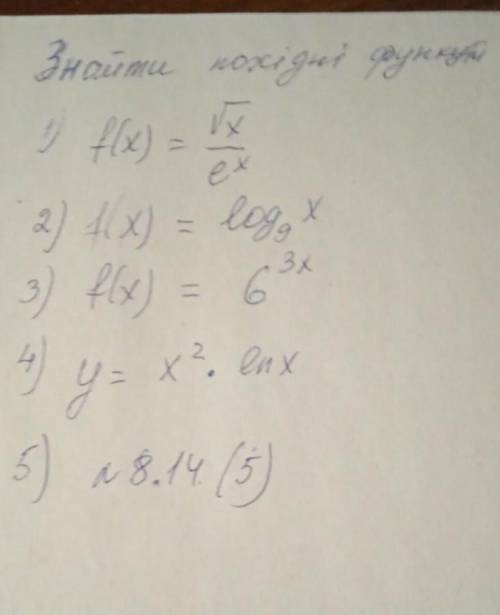 Знайти похідні функції
1) f(x) = √x / e^x
2) f(x) = log₉ x
3) f(x) = 6^3x
4) y = x² · ln x
5) № 8.14 (5)